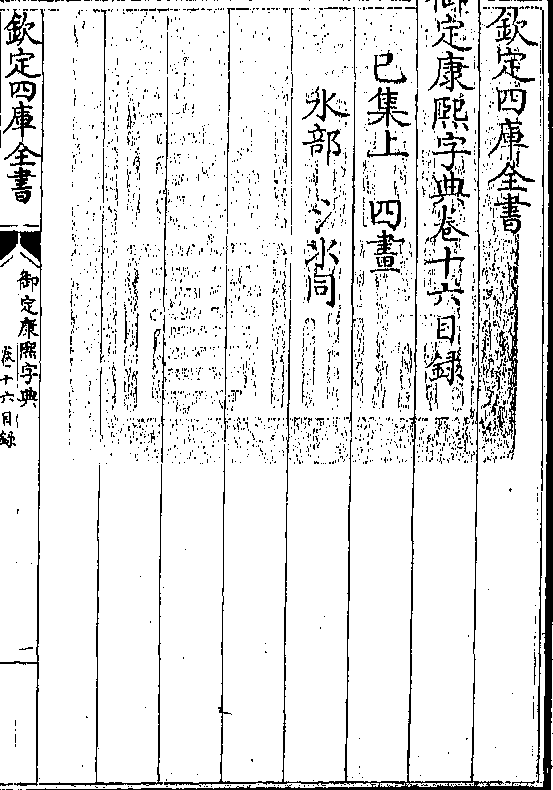 欽定四庫全書
御定康熙字典卷十六目錄
巳集上 四畫
水部 氵氺同
欽定四庫全書
御定康熙字典
卷十六目錄
一